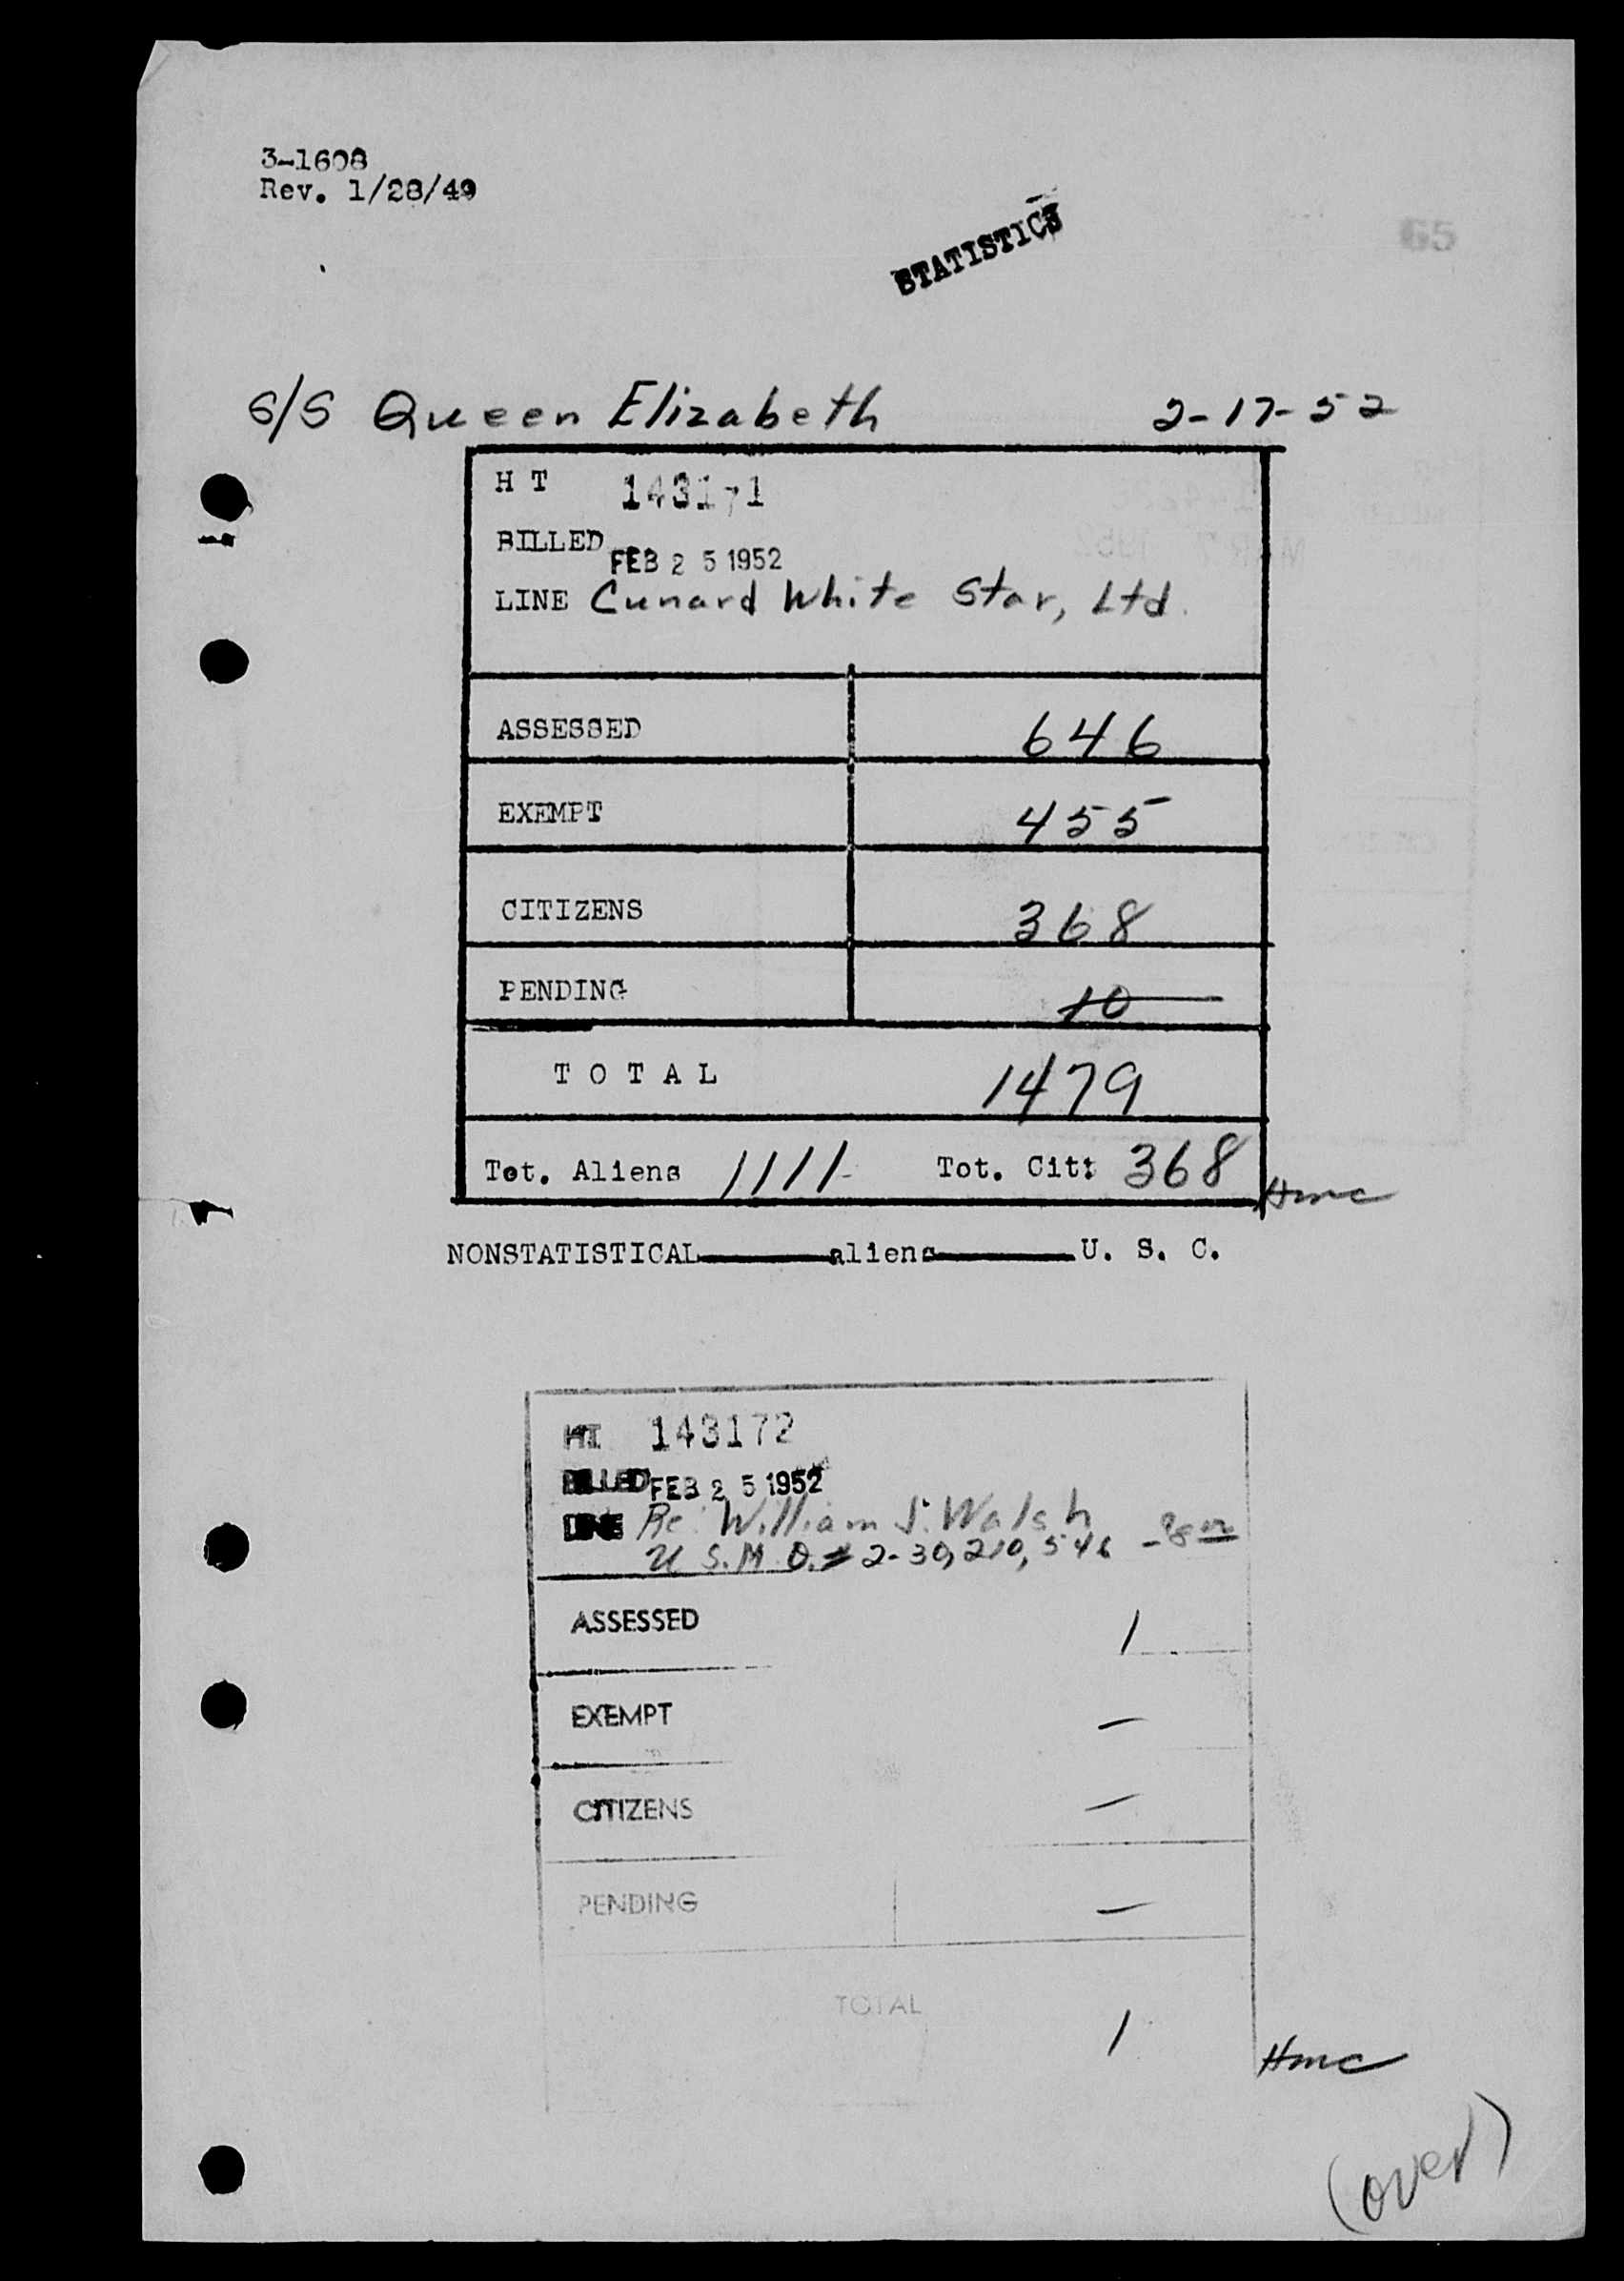 3-1608
Rev. 1/28/49
STATISTICS
65
S/S Queen Elizabeth 2-17-52
H T 143171
BILLED FEB 25 1952
LINE Cunard White Star, Ltd.
ASSESSED 646
EXEMPT 455
CITIZENS 368
PENDING 10
T O T A L 1479
Tot. Aliens 1111 Tot. Cit: 368
Hmc
NONSTATISTICAL aliens U. S. C.
HT 143172
BILLED FEB 25 1952
LINE Re: William J. Walsh
U.S.M.O.# 2-30,210,546 -8 00
ASSESSED 1
EXEMPT —
CITIZENS —
PENDING —
TOTAL
1
Hmc
(over)